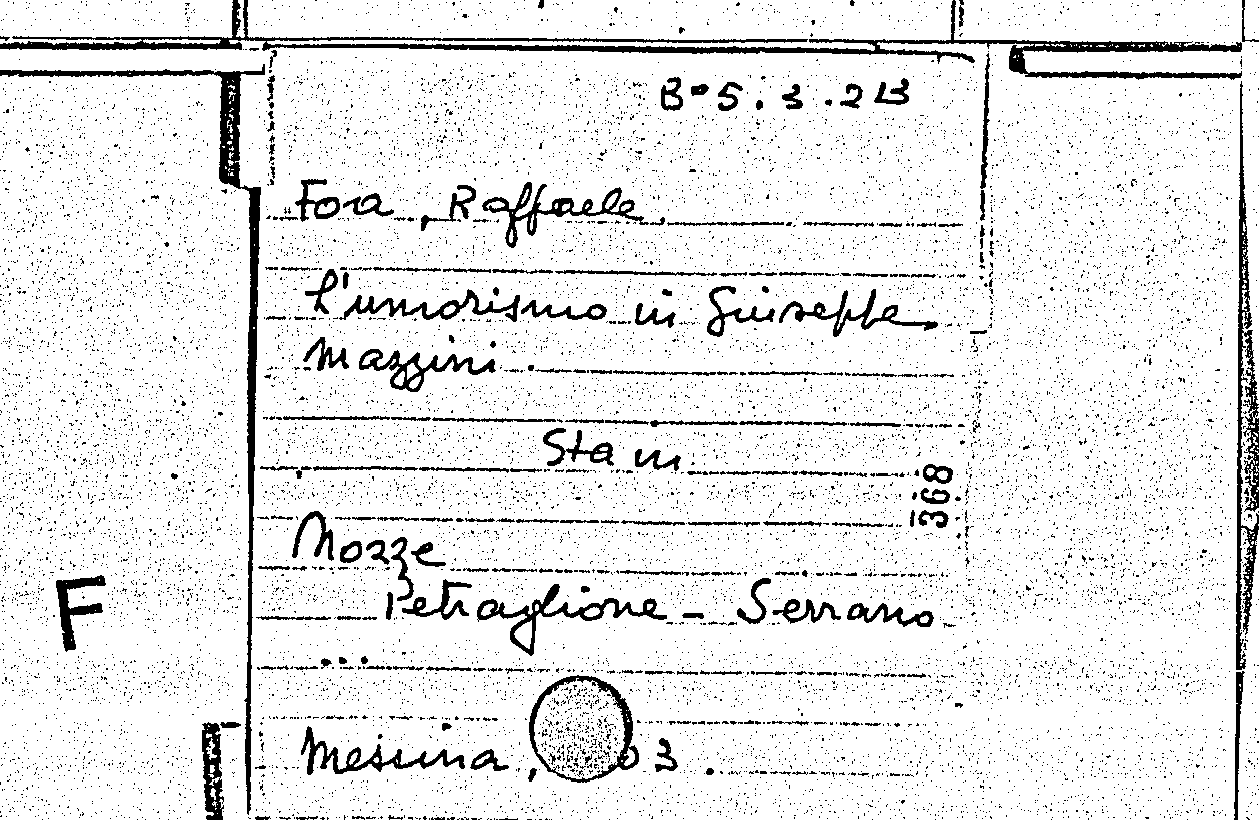 B-5.3.213
Fora, Raffaele.
L'umorismo in Giuseppe
Mazzini.
Stam
368
Nozze
Petraglione - Serrano
F
...
Messina, 03.